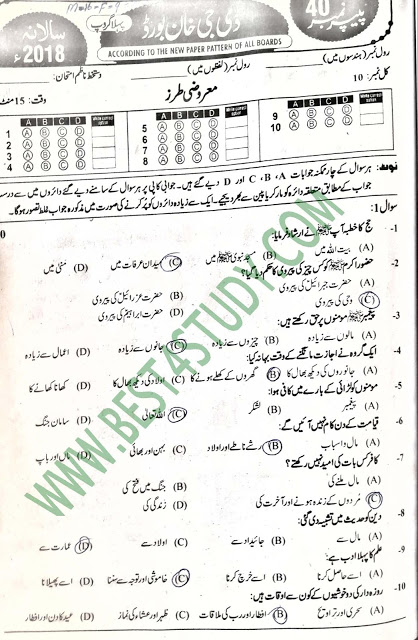 پیپر نمبر 40
ڈی جی خان بورڈ
پہلا گروپ
سالانہ 2018ء
ACCORDING TO THE NEW PAPER PATTERN OF ALL BOARDS
رول نمبر (ہندسوں میں)
رول نمبر (لفظوں میں)
دستخط ناظم امتحان:
کل نمبر: 10
معروضی طرز
وقت: 15 منٹ
A B C D
1 A B C D
2 A B C D
3 A B C D
4 A B C D
A B C D
5 A B C D
6 A B C D
7 A B C D
8 A B C D
A B C D
9 A B C D
10 A B C D
نوٹ: ہر سوال کے چار ممکنہ جوابات A، B، C اور D دیے گئے ہیں۔ جوابی کاپی پر ہر سوال کے سامنے دیے گئے دائروں میں سے درست
جواب کے مطابق متعلقہ دائرہ کو مارکر یا پین سے بھر دیجیے۔ ایک سے زیادہ دائروں کو پُر کرنے کی صورت میں مذکورہ جواب غلط تصور ہوگا۔
سوال 1:
1- حج کا خطبہ آپ ﷺ نے ارشاد فرمایا:
(A) بیت اللہ میں (B) مسجد نبوی ﷺ میں (C) میدان عرفات میں (D) منیٰ میں
2- حضور اکرم ﷺ کو کس چیز کی پیروی کا حکم دیا گیا؟
(A) حضرت جبرائیل کی پیروی (B) حضرت عزرائیل کی پیروی
(C) وحی کی پیروی (D) حضرت ابراہیم کی پیروی
3- پیغمبر ﷺ مومنوں پر حق رکھتے ہیں:
(A) مالوں سے زیادہ (B) چیزوں سے زیادہ (C) جانوں سے زیادہ (D) اعمال سے زیادہ
4- ایک گروہ نے اجازت مانگنے کے وقت بہانہ کیا:
(A) جانوروں کی دیکھ بھال کا (B) گھروں کے کھلے ہونے کا (C) اولاد کی دیکھ بھال کا (D) کھانا کھانے کا
5- مومنوں کو لڑائی کے بارے میں کافی ہوا:
(A) پیغمبر (B) لشکر (C) اللہ تعالیٰ (D) سامان جنگ
6- قیامت کے دن کام نہیں آئیں گے:
(A) مال و اسباب (B) رشتے ناطے اور اولاد (C) بہن اور بھائی (D) ماں اور باپ
7- کافر کس بات کی امید نہیں رکھتے؟
(A) مال ملنے کی (B) جنگ میں فتح کی
(C) مُردوں کے زندہ ہونے اور آخرت کی (D) زندگی کی
8- دین کو حدیث میں تشبیہ دی گئی:
(A) مال سے (B) جائیداد سے (C) اولاد سے (D) عمارت سے
9- علم کا پہلا ادب ہے:
(A) اسے حاصل کرنا (B) اسے خرچ کرنا (C) خاموشی اور توجہ سے سننا (D) اسے پھیلانا
10- روزہ دار کی دو خوشیوں کے کون سے اوقات ہیں:
(A) سحری اور تراویح (B) افطار اور رب کی ملاقات (C) ظہر اور عشاء کی نماز (D) عید کا دن اور افطار
WWW.BEST4STUDY.COM